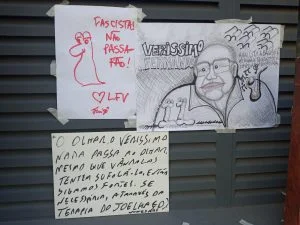 FASCISTA!
NÃO
PASSA
RÃO!
♡ LFV
VERISSIMO
O OLHAR, O VERISSIMO
NADA PASSA AO OLHAR,
MESMO QUE VÂNDALOS
TENTEM SUFOCÁ-LO. ENTÃO
SIGAMOS FORTES. SE
NECESSÁRIO, ATRAVÉS DA
TERAPIA DO JOELHAÇO!